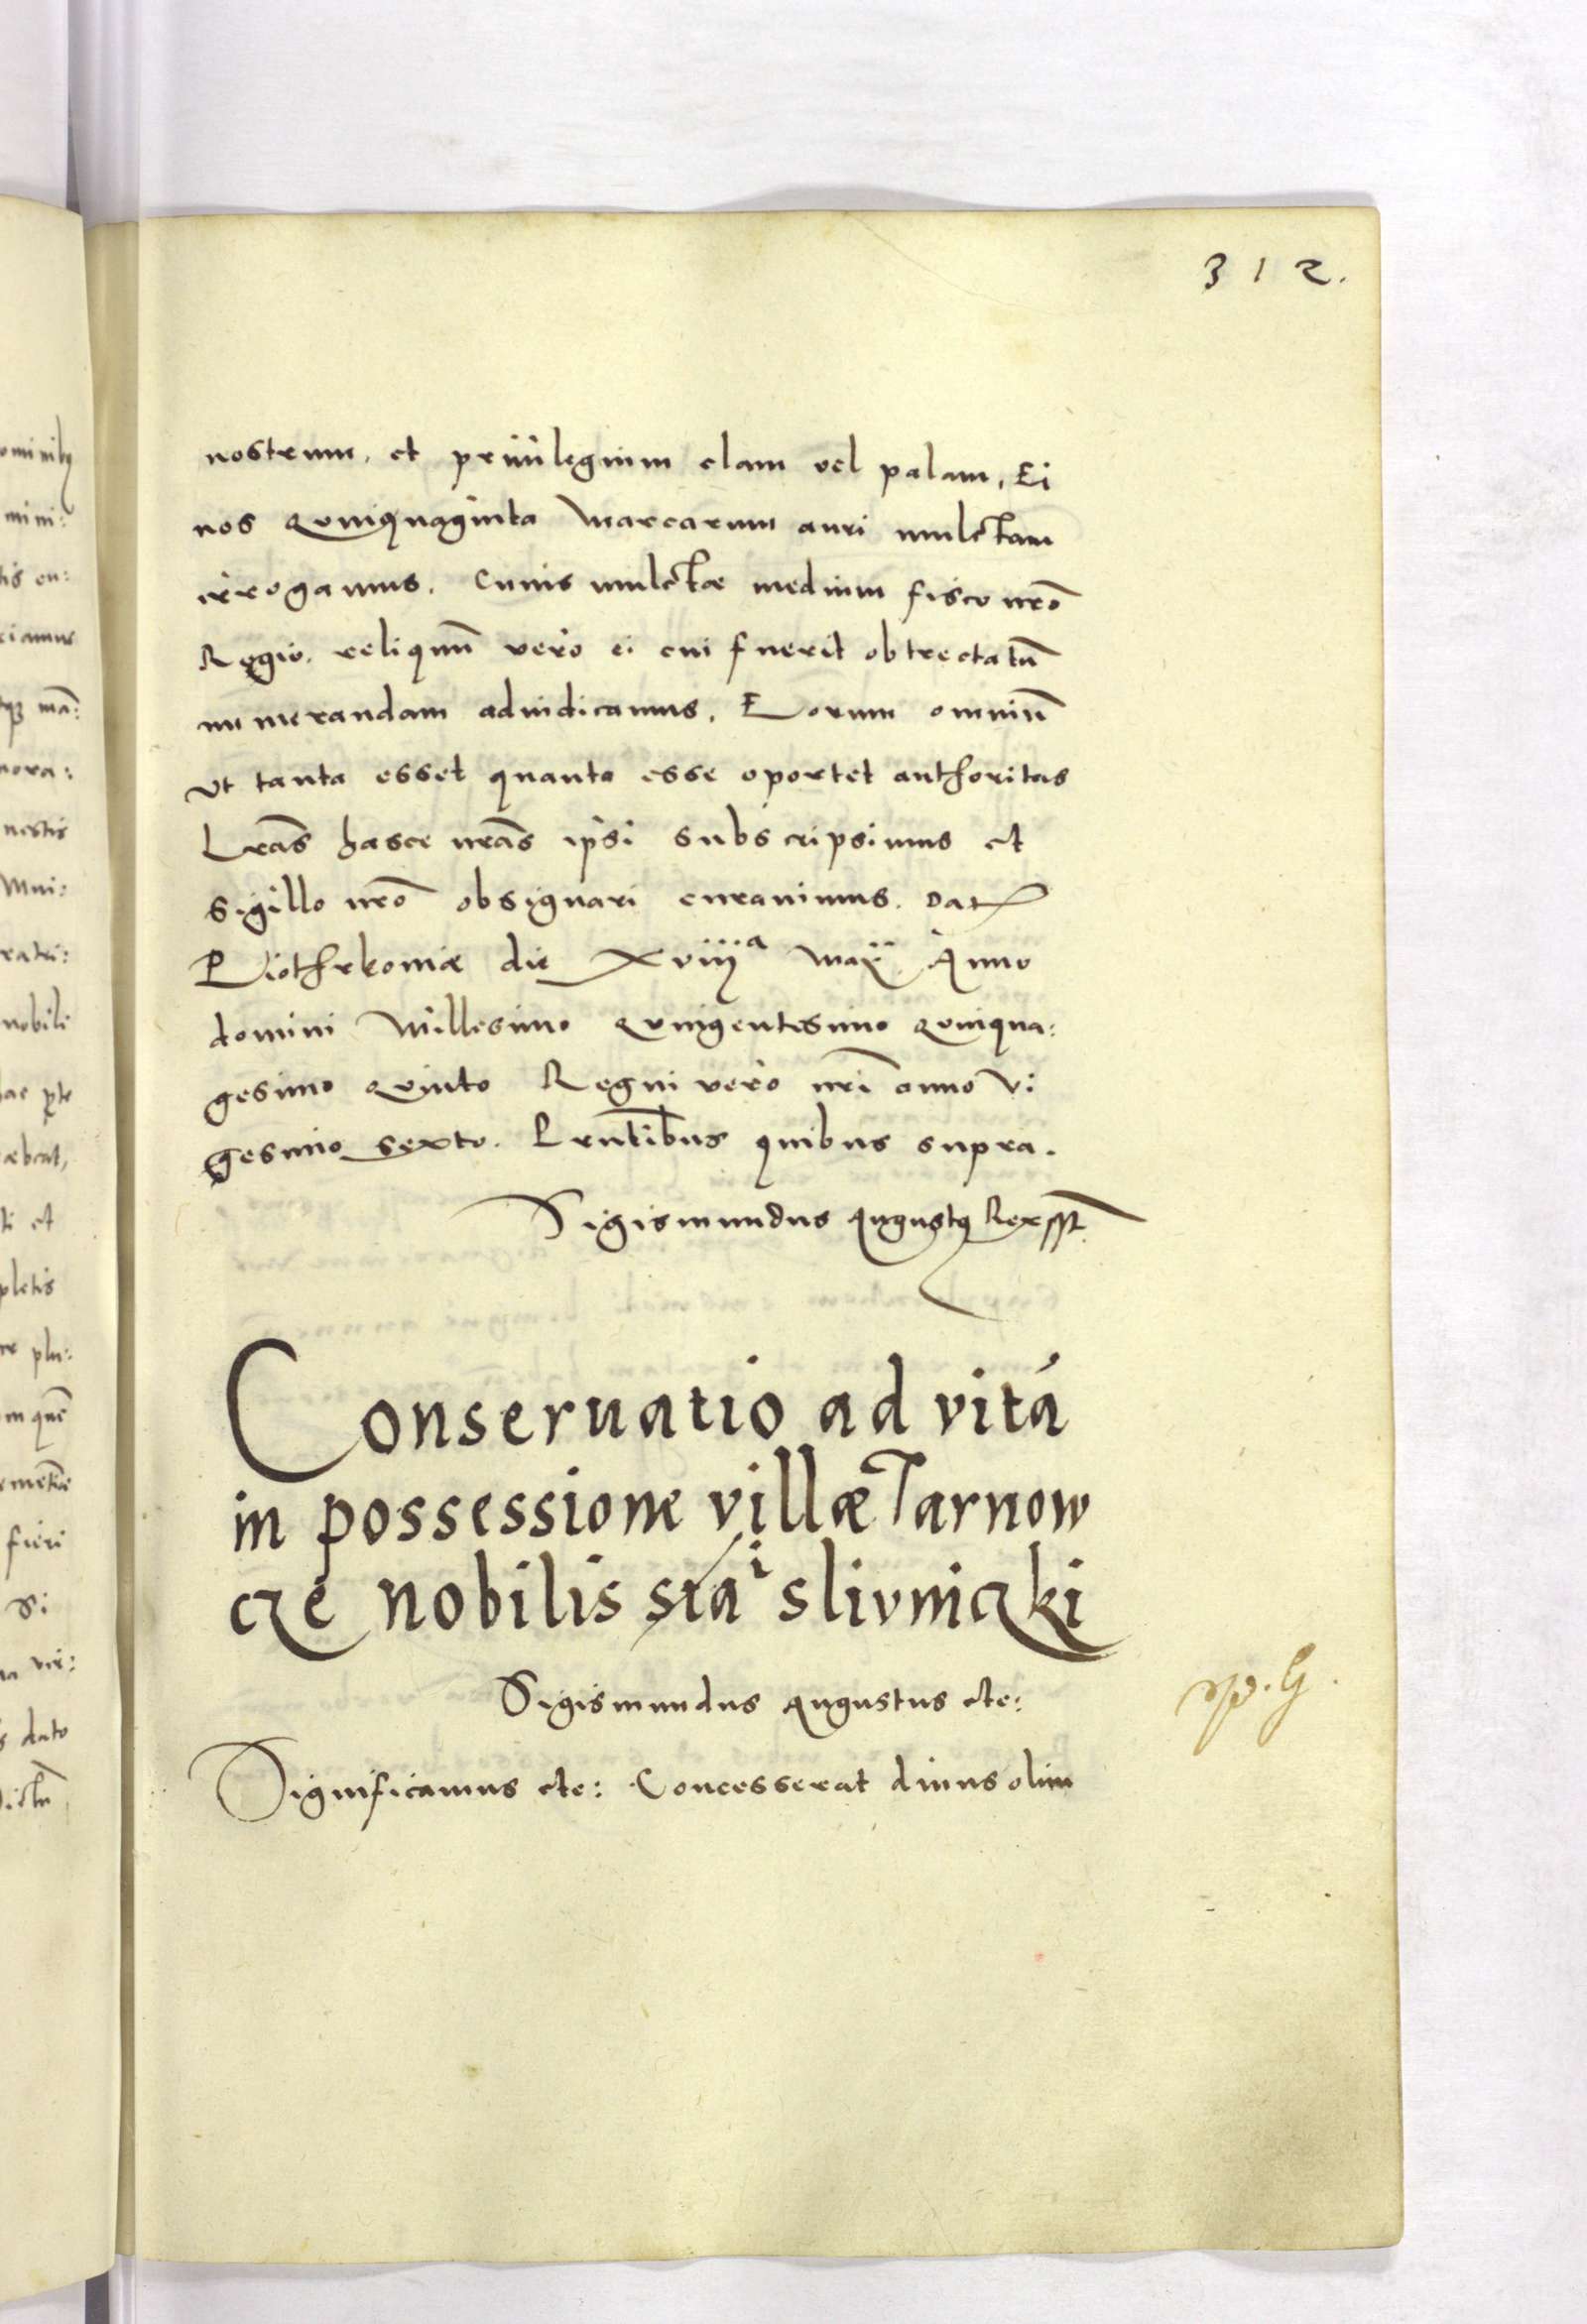 312.
nostrum, et priuilegium clam vel palam, Ei
nos quinquaginta marcarum auri mulctam
irrogamus. Cuius mulctæ medium fisco nrõ
Regio. reliquũ vero ei cui fuerit obtrectatũ
numerandam adiudicamus. Eorum omniũ
vt tanta esset quanta esse oportet authoritas
Lrãs hasce nrãs ipsi subscripsimus et
sigillo nrõ obsignari curauimus. Dat
Piothrkoniæ die xviiijᵃ maÿ Anno
domini Millesimo quingentesimo quinqua:
gesimo quinto Regni vero nrĩ anno vi
gesimo sexto. Prntĩbus quibus supra.
Sigismundus Augustꝰ Rex sspt.
Conseruatio ad vitá
in possessione villæ Tarnow
cze nobilis stáⁱ slivniczki
Sigismundus Augustus etc:
Significamus etc: Concesserat diuus olim